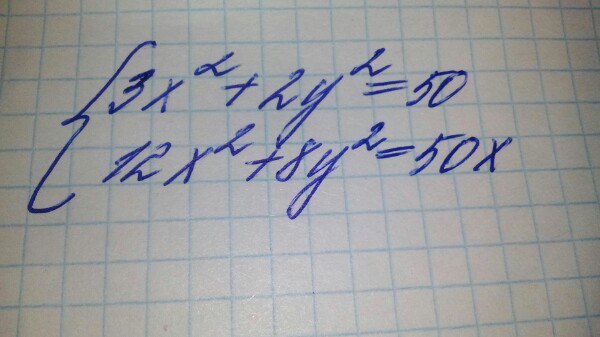 3x²+2y²=50
12x²+8y²=50x